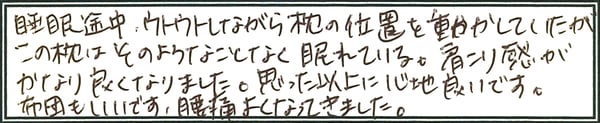 睡眠途中、ウトウトしながら枕の位置を動かしていたが
この枕はそのようなことなく眠れている。肩こり感が
かなり良くなりました。思った以上に心地良いです。
布団もいいです、腰痛よくなってきました。